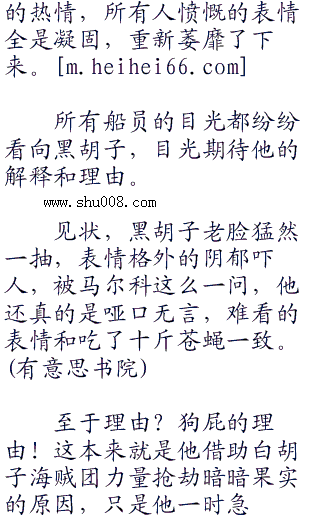 的热情，所有人愤慨的表情
全是凝固，重新萎靡了下
来。[m.heihei66.com]
所有船员的目光都纷纷
看向黑胡子，目光期待他的
解释和理由。
www.shu008.com
见状，黑胡子老脸猛然
一抽，表情格外的阴郁吓
人，被马尔科这么一问，他
还真的是哑口无言，难看的
表情和吃了十斤苍蝇一致。
(有意思书院)
至于理由？狗屁的理
由！这本来就是他借助白胡
子海贼团力量抢劫暗暗果实
的原因，只是他一时急